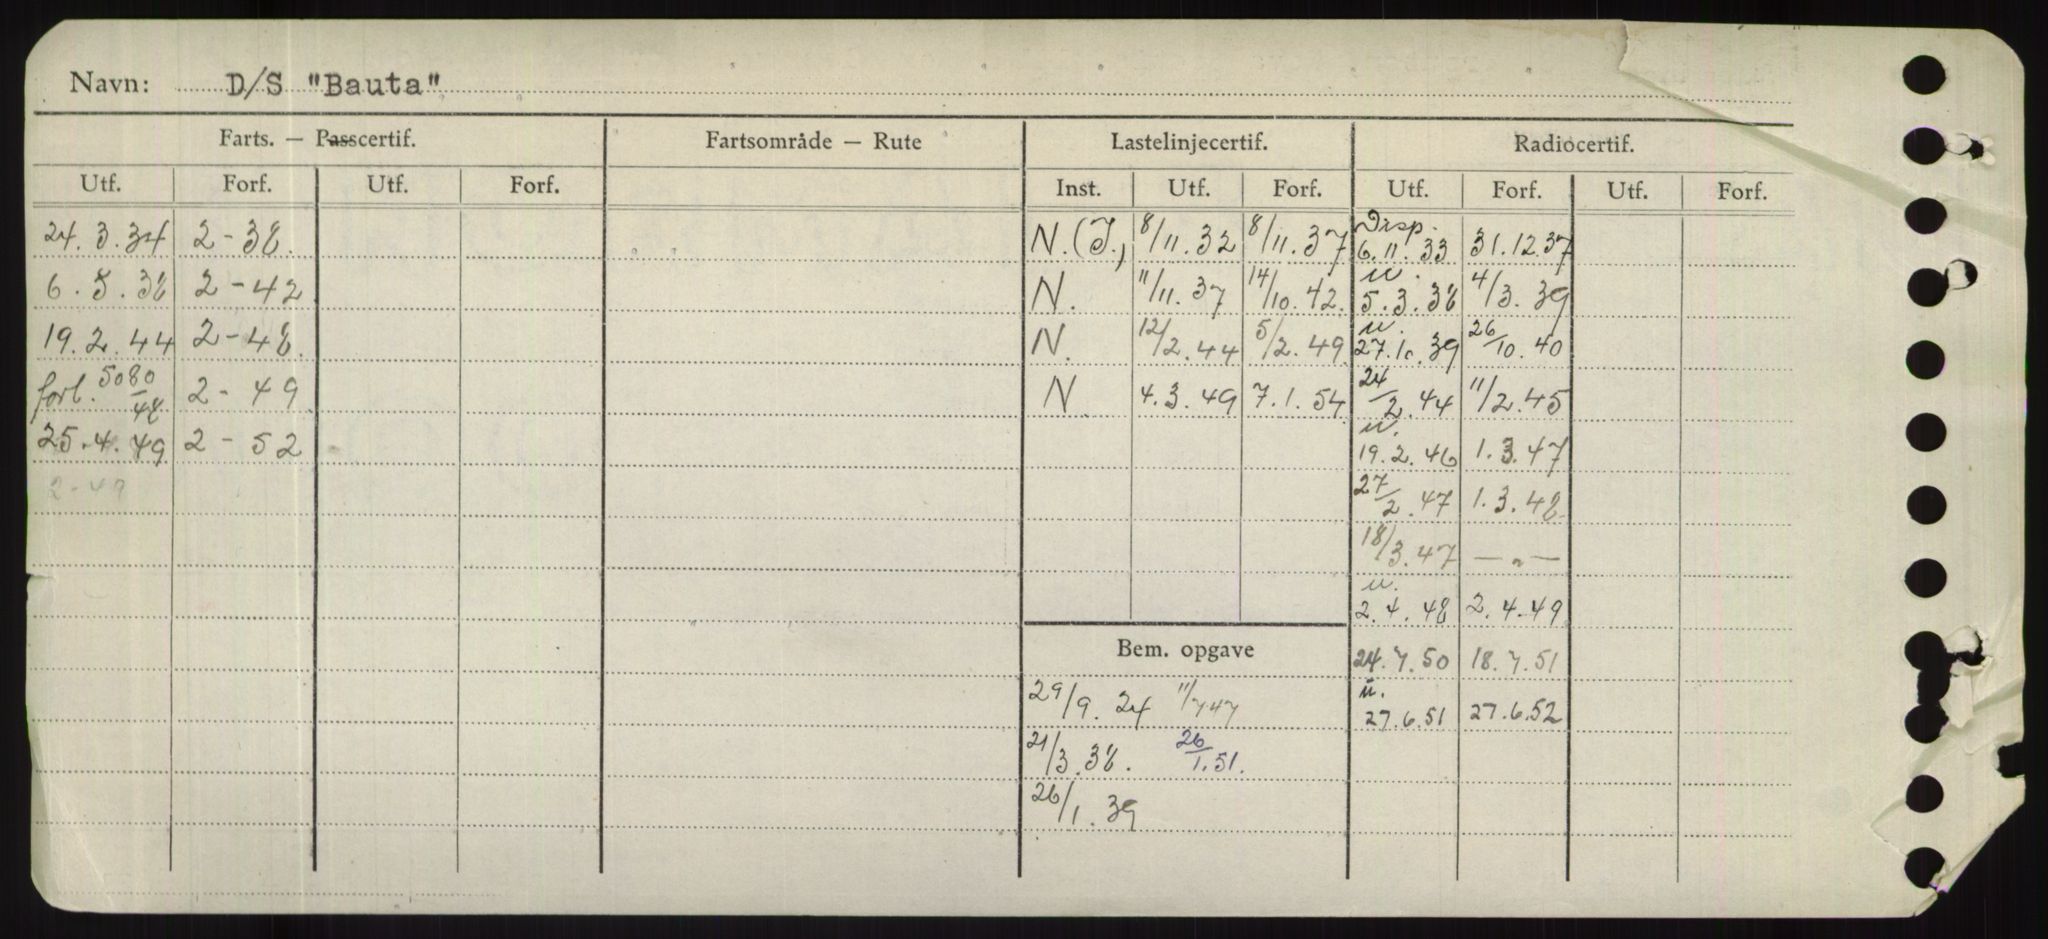 Navn: D/S "Bauta"
Farts. — Passcertif. Fartsområde — Rute Lastelinjecertif. Radiocertif.
Utf. Forf. Utf. Forf. Inst. Utf. Forf. Utf. Forf. Utf. Forf.
24.3.34 2-38. N.(I.) 8/11.32 8/11.37 Disp. 6.11.33 31.12.37
6.5.38 2-42 N. 11/11.37 14/10.42. u. 5.3.38 4/3.39
19.2.44 2-48. N. 12/2.44 5/2.49 u. 27.10.39 26/10.40
forl. 5080/48 2-49 N 4.3.49 7.1.54 24/2.44 11/2.45
25.4.49 2-52 u. 19.2.46 1.3.47
2-49 27/2.47 1.3.48
18/3.47 —„—
u. 2.4.48 2.4.49
Bem. opgave 24.7.50 18.7.51
29/9.24 11/7 47 u. 27.6.51 27.6.52
21/3.38. 26/1.51.
26/1.39